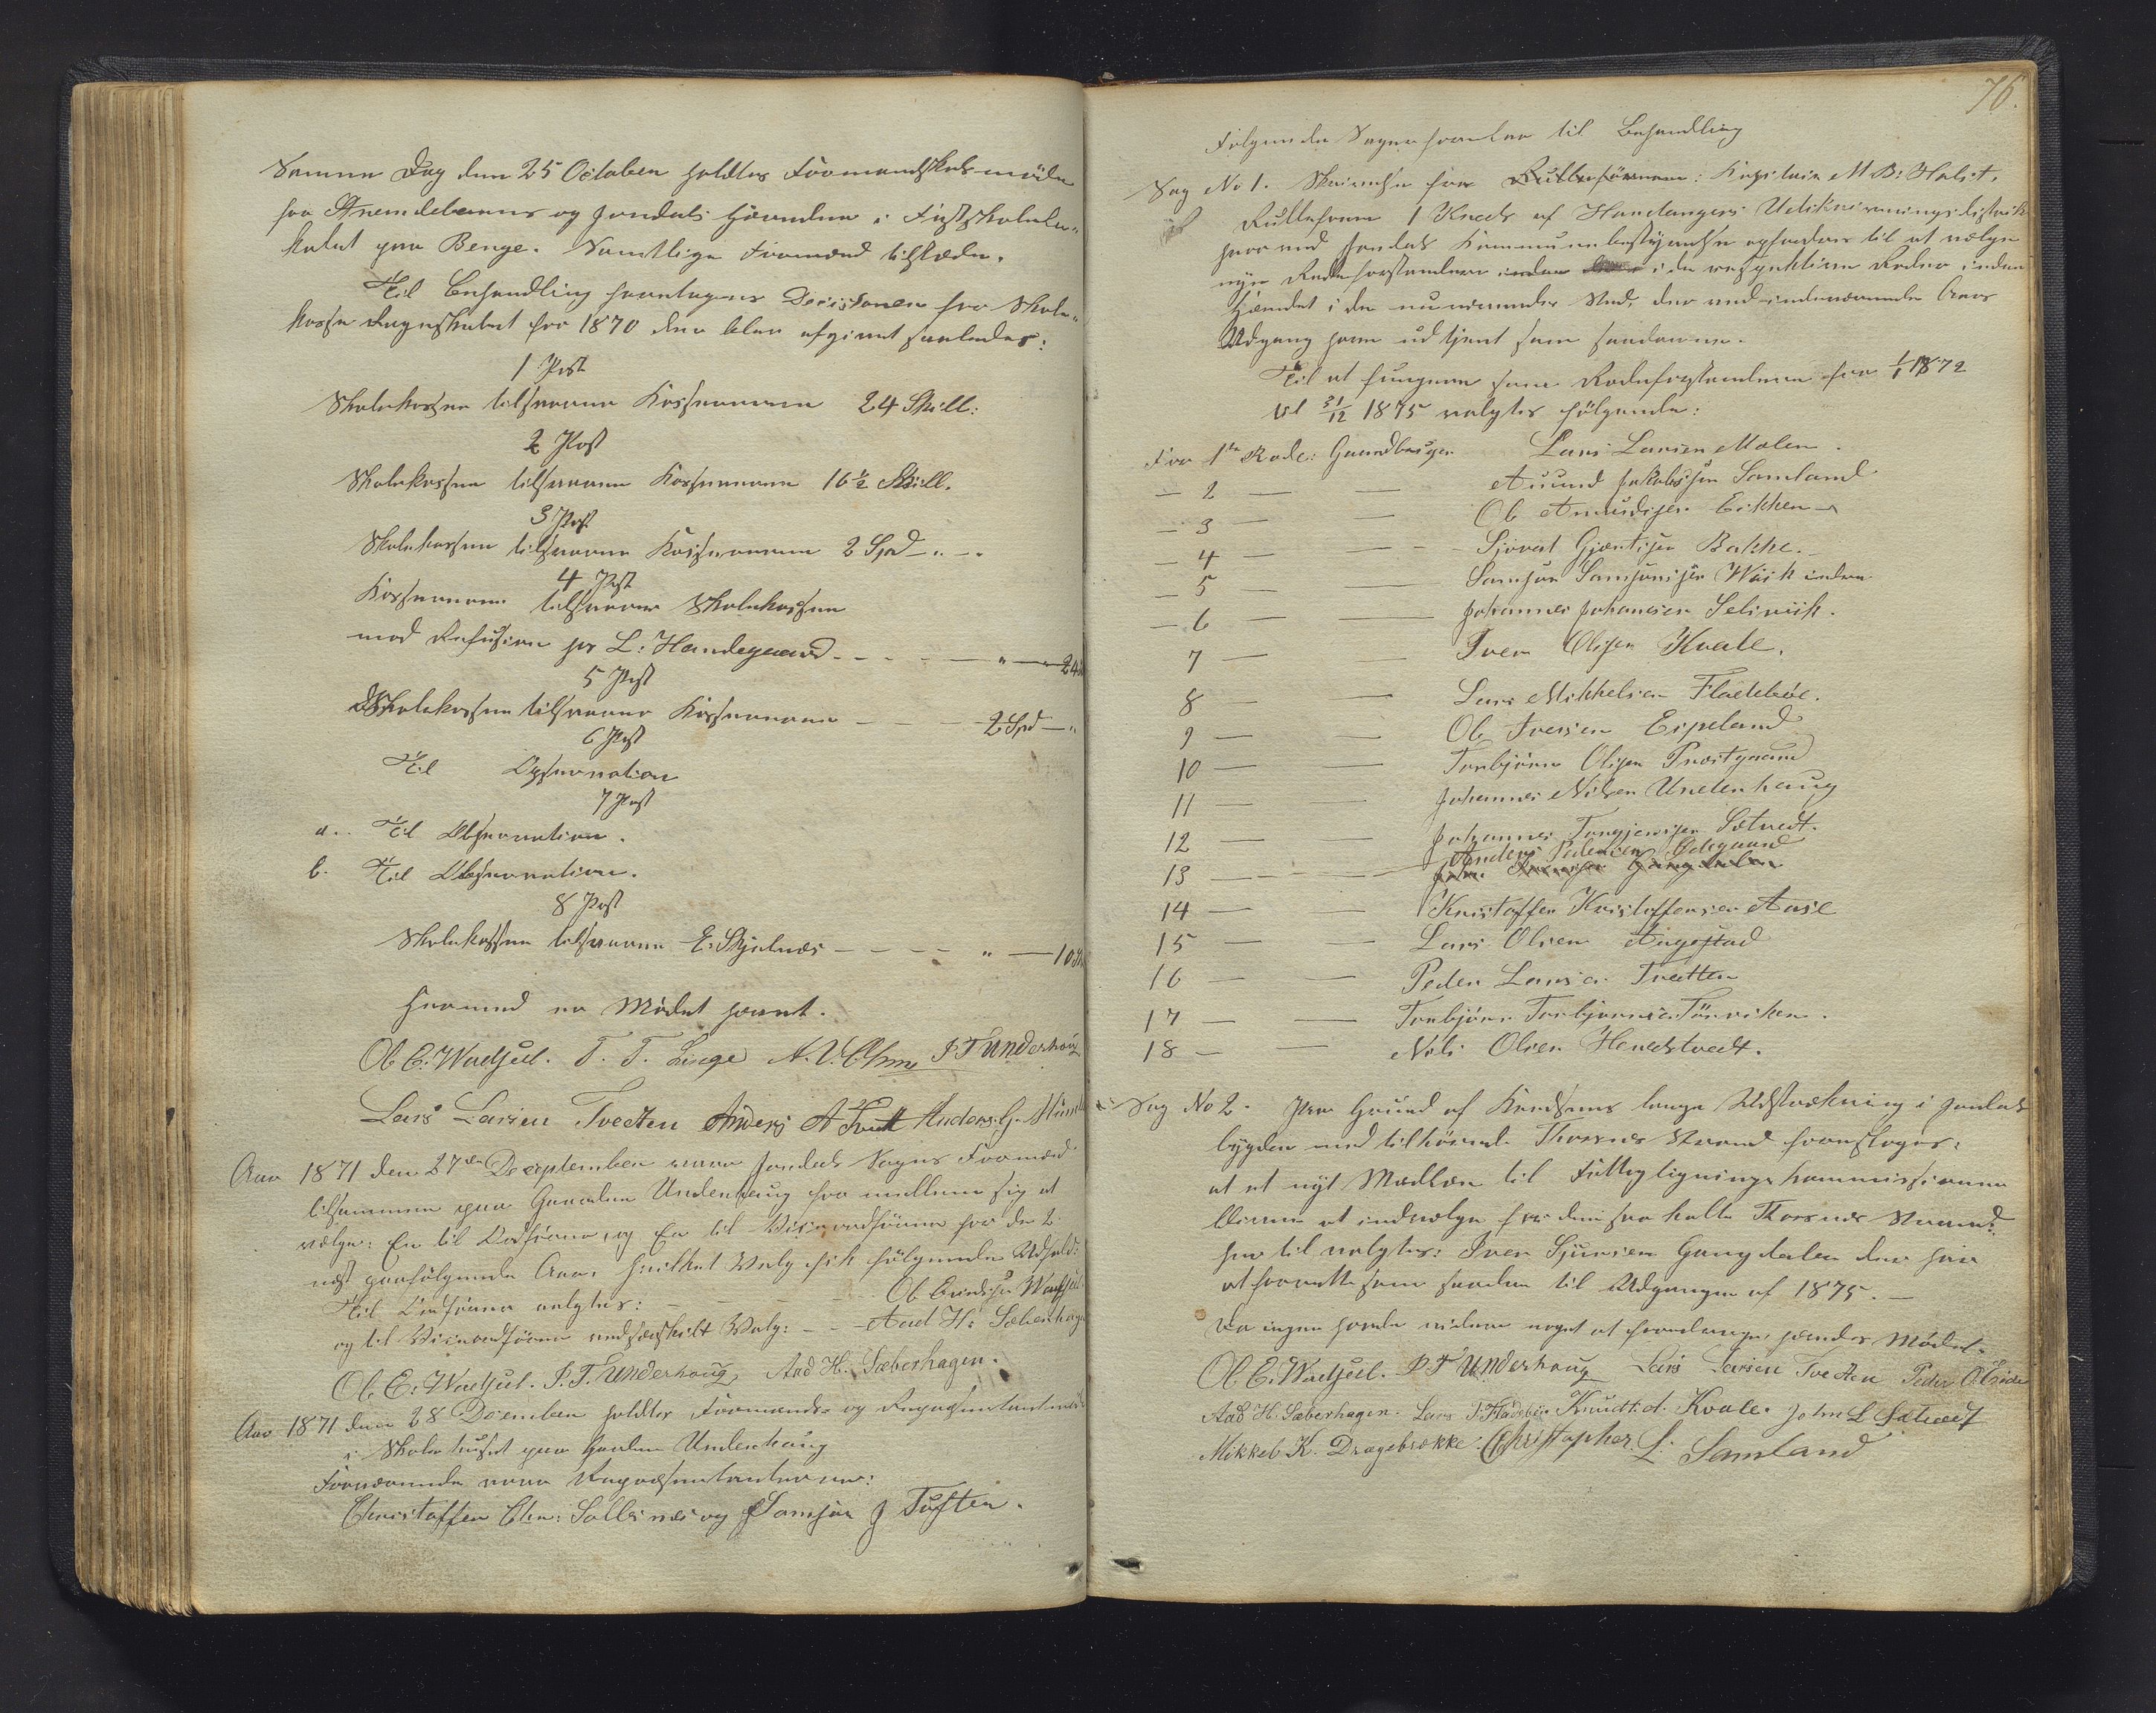 Samme Dag den 25 October holdtes Formandskabsmöde
for Strandebarms og Jondals Herreder i Fastskolelo-
kalet paa Berge. Samtlige Formænd tilstede.
Til Behandling foretoges Decisionen for Skole-
kasse Regnskabet for 1870 der blev afgivet saaledes:
1 Post
Skolekassen tilsvarer Kassereren 24 Skill:
2 Post
Skolekassen tilsvarer Kassereren 16½ Skill.
3 Post
Skolekassen tilsvarer Kassereren 2 Spd - " - "
4 Post
Kassereren tilsvarer Skolekassen
mod Refusion hos L: Handegaard - - - - " - 24
5 Post
Skolekassen tilsvarer Kassereren - - - 2 Spd - "
6 Post
Til Observation
7 Post
a. Til Observation.
b. Til Observation.
8 Post
Skolekassen tilsvarer E. Skjelnæs - - - - " - 10
Hermed er Mödet hævet.
Ol. E. Wadsel. T. T. Linge P T Underhoug
Lars Larsen Tvedten Anders A Tvedt Anders G.
Aar 1871 den 27de December vare Jondals Sogns Formænd
tilsammen paa Gaarden Underhaug for mellem sig at
vælge: En til Ordförer, og En til Viceordförer for de 2
næst paafölgende Aar, hvilket Valg fik fölgende Udfald:
Til Ordförer valgtes: - - - Ol. Wadsel
og til Viceordförer ved særskilt Valg: - - Aad H: Sæberhagen
Ol. E. Wadsel. P. T. Underhoug, Aad H. Sæberhagen.
Aar 1871 den 28 December holdtes Formands- og Repræsentantmöde
i Skolehuset paa Gaarden Underhaug
Fraværende vare Repræsentanterne:
Christoffer Chr: Solles næs og Samson J Tuften.
76.
Fölgende Sager foretoges til Behandling
Sag No 1. Skrivelse fra Rulleförer: Kapitain M. B: Holst.
Rulleförer i 1 Kreds af Hardangers Udskrivningsdistrikt
hvorved Jondals Kommunebestyrelse opfordres til at vælge
nye Rodeforstandere i de respektive Roder inden
Herredet i de nuværendes Sted, der ved indeværende Aars
Udgang have udtjent som saadanne.
Til at fungere som Rodeforstandere fra 1/1 1872
til 31/12 1875 valgtes fölgende:
For 1te Rode: Gaardbruger Lars Larsen Molen.
- 2 - - Amund Jakobsen Samland
- 3 - - Ol. Amundsen Eikken
- 4 - - Sjovat Gjertsen Bakke.
- 5 - - Samson Samsonsen Wiik indre
- 6 - - Johannes Johannesen Selsviik.
7 - - Iver Olsen Kvale.
8 - - Lars Mikkelsen Fladebøe.
9 - - Ol. Iversen Espeland
10 - - Torbjörn Olsen Prestgaard
11 - - Johannes Nilsen Underhaug
12 - - Johannes Torgjersen Sætvedt.
Anders Pedersen Ødegaard
13 - - -
14 - - Kristoffer Kristoffersen Aase
15 - - Lars Olsen Augestad
16 - - Peder Larsen Tvedten
17 - - Torbjörn Torbjörnsen Törviken.
18 - - Nils Olsen Herredstvedt.
Sag No 2. Paa Grund af Kredsens lange Udstrækning i Jondals
bygden med tilhörende Thorsnæs Strand foresloges:
at et nyt Medlem til Fattigligningskommissionen
bliver at indvælge for den saa kaldte Thorsnæs Strand.
Her til valgtes: Iver Sjursen Gangdalen der har
at forrette som saadan til Udgangen af 1875. -
Da ingen havde videre noget at foredrage, hævedes Mödet.
Ol. E. Wadsel. P T Underhoug Lars Larsen Tvedten Peder
Aad H. Sæberhagen. Lars J. Fladebø. Knudt. O. Kvale. John L Sætvedt
Mikkel K. Drægebrække. Christopher L: Samland